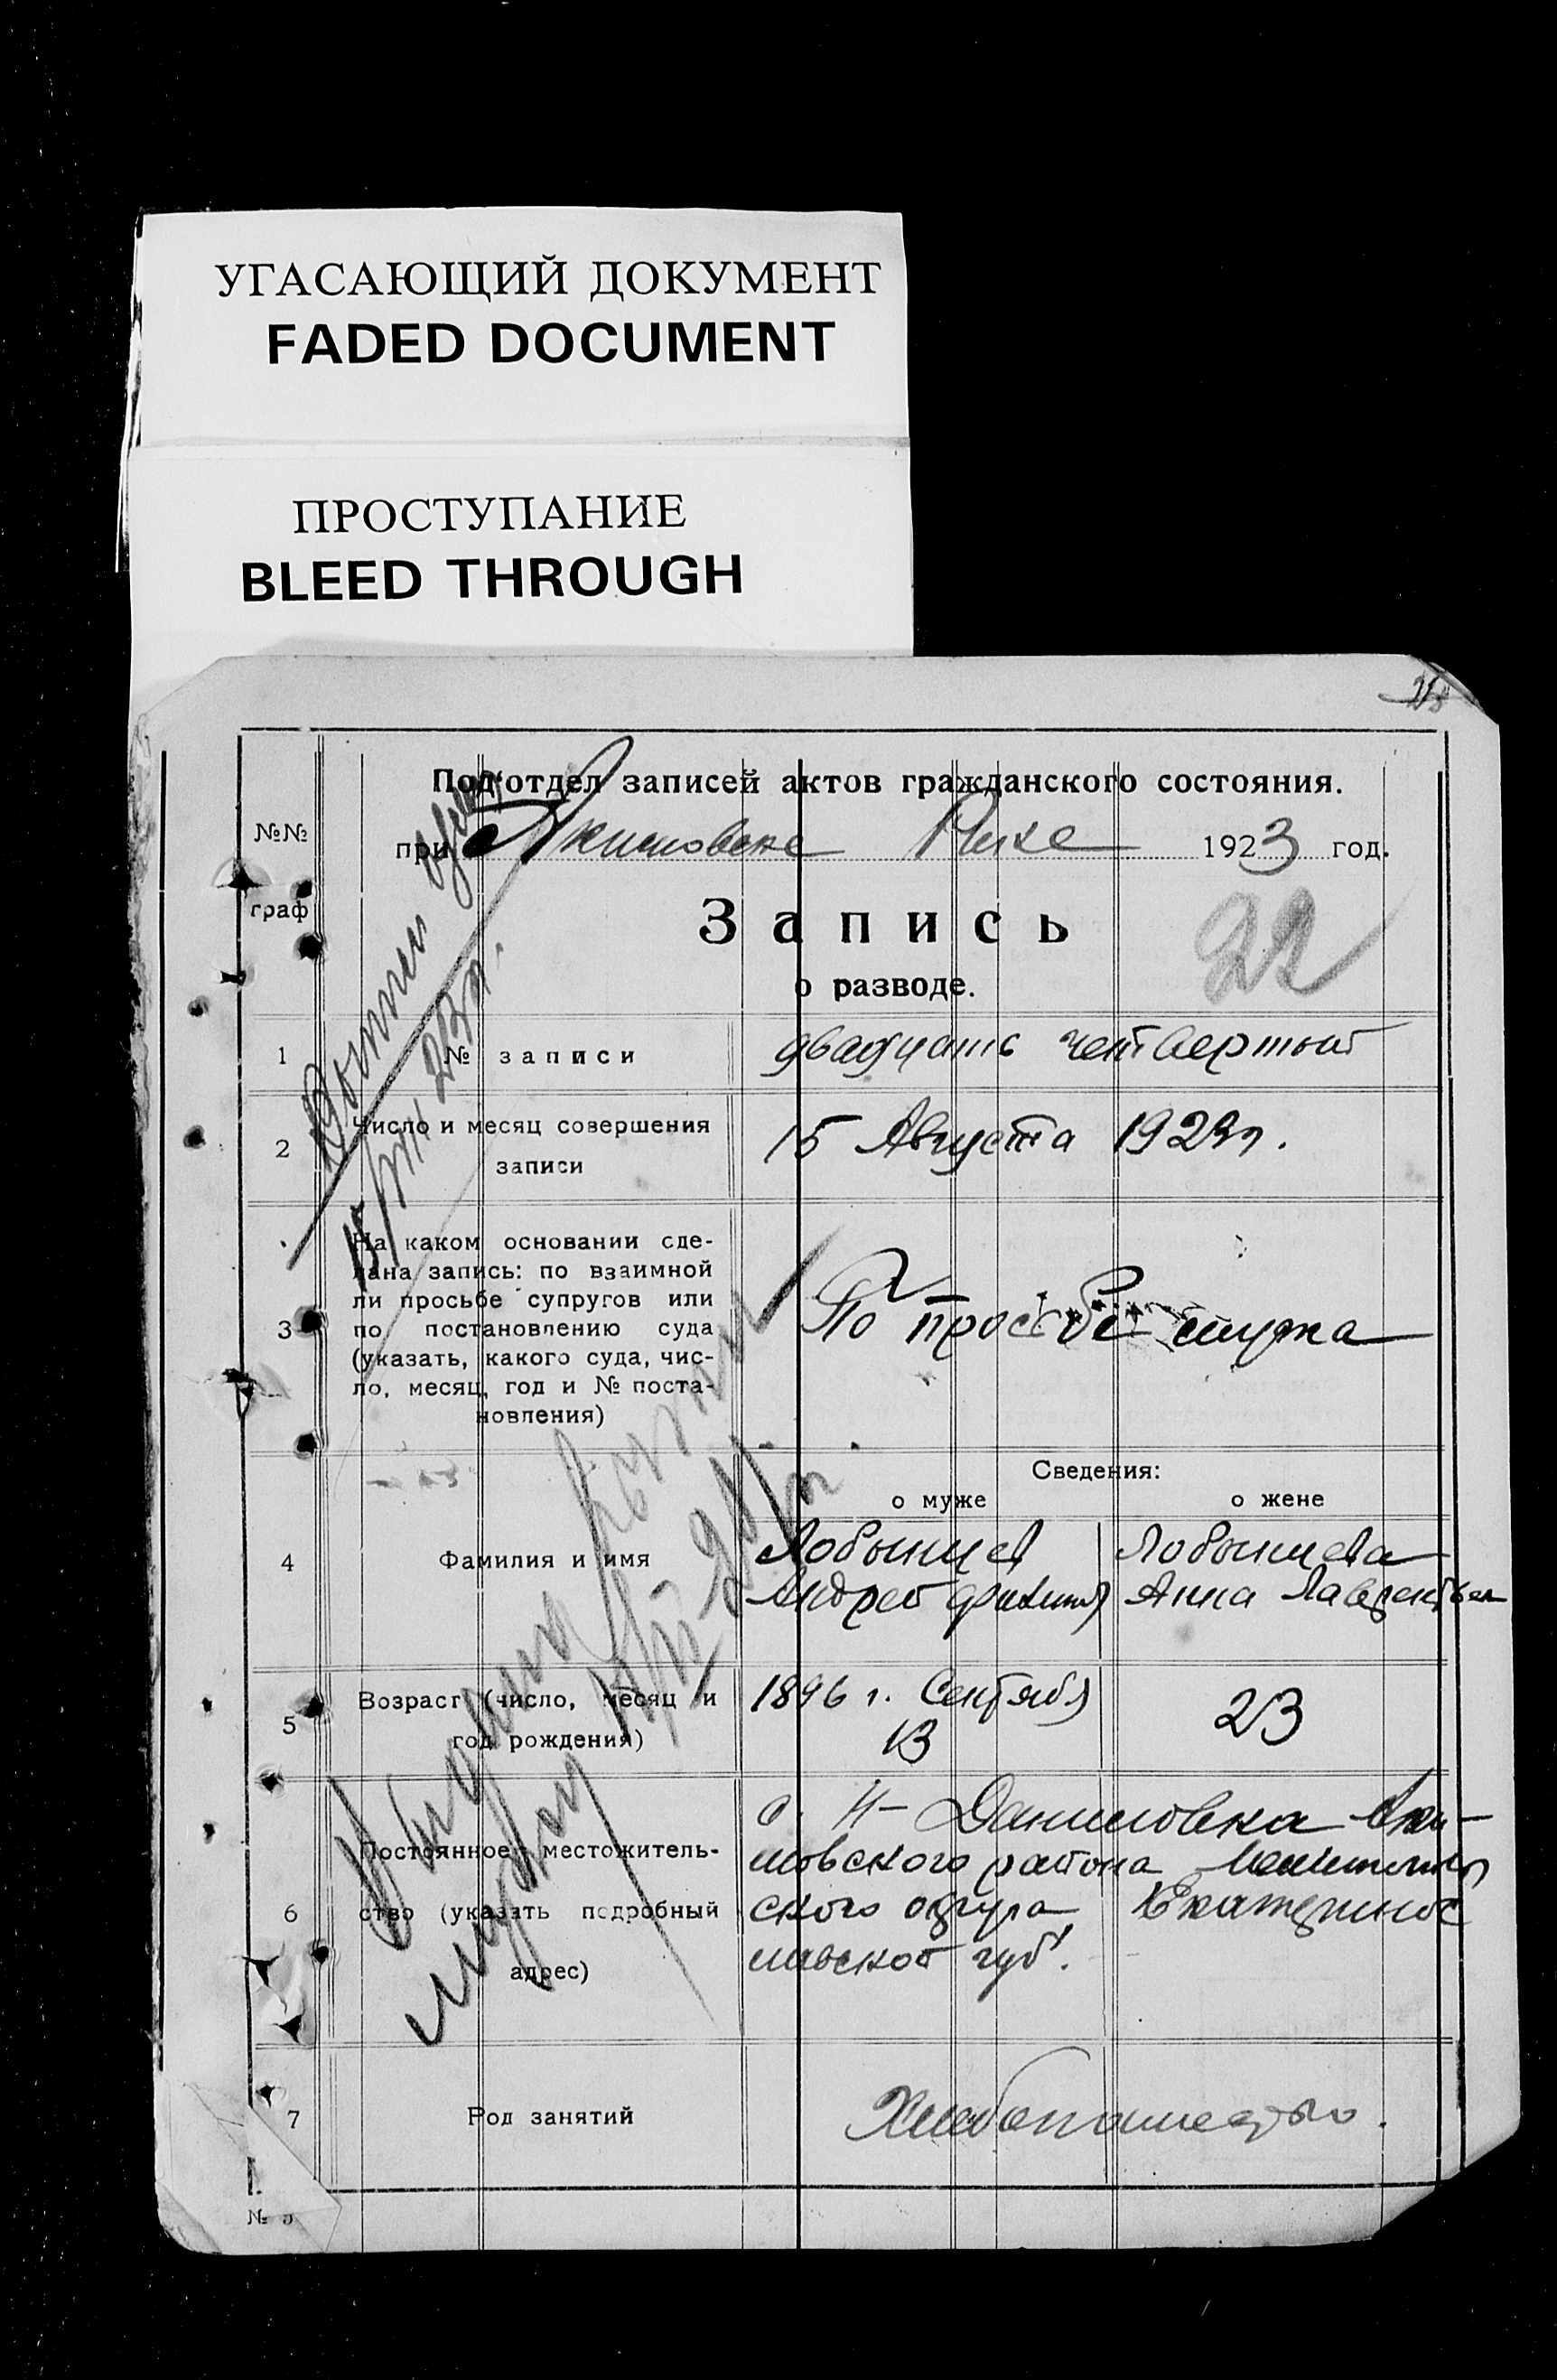 УГАСАЮЩИЙ ДОКУМЕНТ
FADED DOCUMENT
ПРОСТУПАНИЕ
BLEED THROUGH
Под'отдел записей актов гражданского состояния.
№№ граф
при Акимовском Рике 1923 год.
Запись
о разводе.
22
1 № записи двадцать четвертый
2 Число и месяц совершения
записи
15 Августа 1923 г.
3 На каком основании сде-
лана запись: по взаимной
ли просьбе супругов или
по постановлению суда
(указать, какого суда, чис-
ло, месяц, год и № поста-
новления)
По просьбе мужа
Сведения:
о муже о жене
4 Фамилия и имя
Лобынцев Лобынцева
Андрей Анна Лаврентьев
5 Возраст (число, месяц и
год рождения)
1896 г. Сентября
13
23
6 Постоянное местожитель-
ство (указать подробный
адрес)
с. Н-Даниловка Аки-
мовского района Мелитополь
ского округа Екатеринос
лавской губ.
7 Род занятий
Хлебопашество.